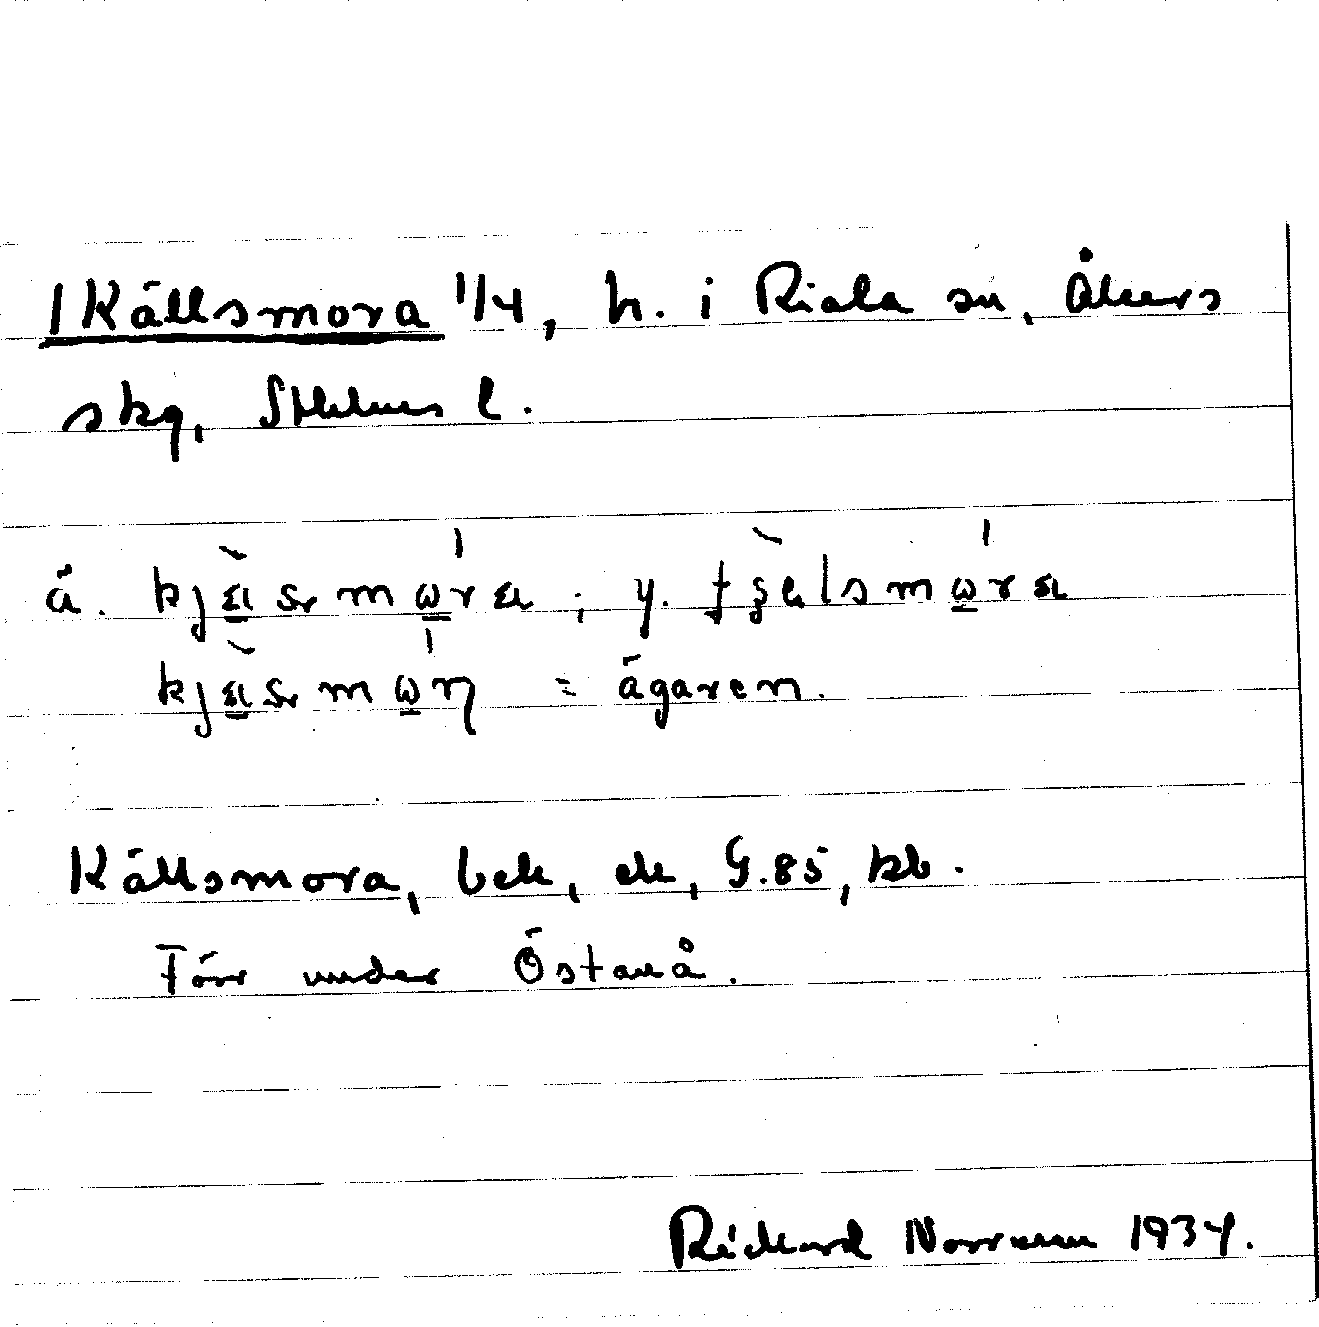 1 Källsmora 1/4, h. i Riala sn, Åkers
skg, Sthlms l.
ä. kjäsmωra ; y. tʂälsmωra
kjäsmωη = ägaren.
Källsmora, bek, ek, G.85, kb.
Förr under Östanå.
Rickard Norrman 1934.